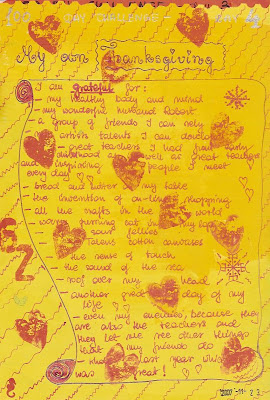 100 DAY CHALLENGE - DAY
My own Thanksgiving
I am grateful for:
- my healthy body and mind
- my wonderful husband Robert
- a group of friends I can rely
artistic talents I can develop
- great teachers I had from early
childhood as well as great teachers
and inspiring people I meet
every day
- bread and butter on my table
- the invention of on-line shopping
- all the crafts in the world
- warm purring cat in my lap
- sour jellies
- Talens cotton canvases
- the sense of touch
- the sound of the sea
- roof over my head
- another great day of my
life
- even my enemies, because they
are also the teachers and
they let me see other things
that my friends do
- that last year was
was great!
2007-11-23